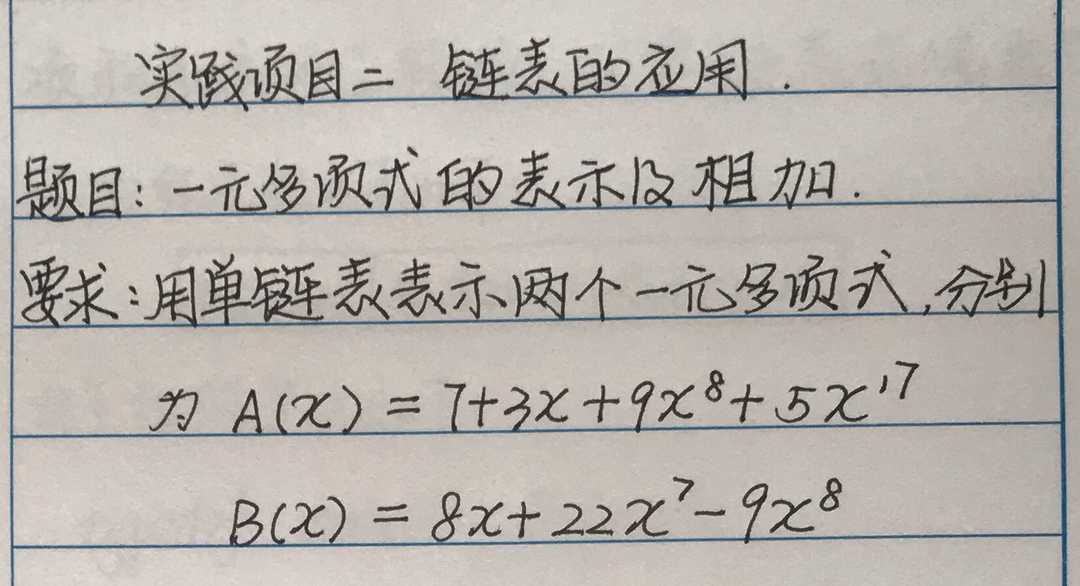 实践项目二 链表的应用.
题目:一元多项式的表示及相加.
要求:用单链表表示两个一元多项式,分别
为 A(x) = 7+3x+9x⁸+5x¹⁷
B(x) = 8x+22x⁷-9x⁸